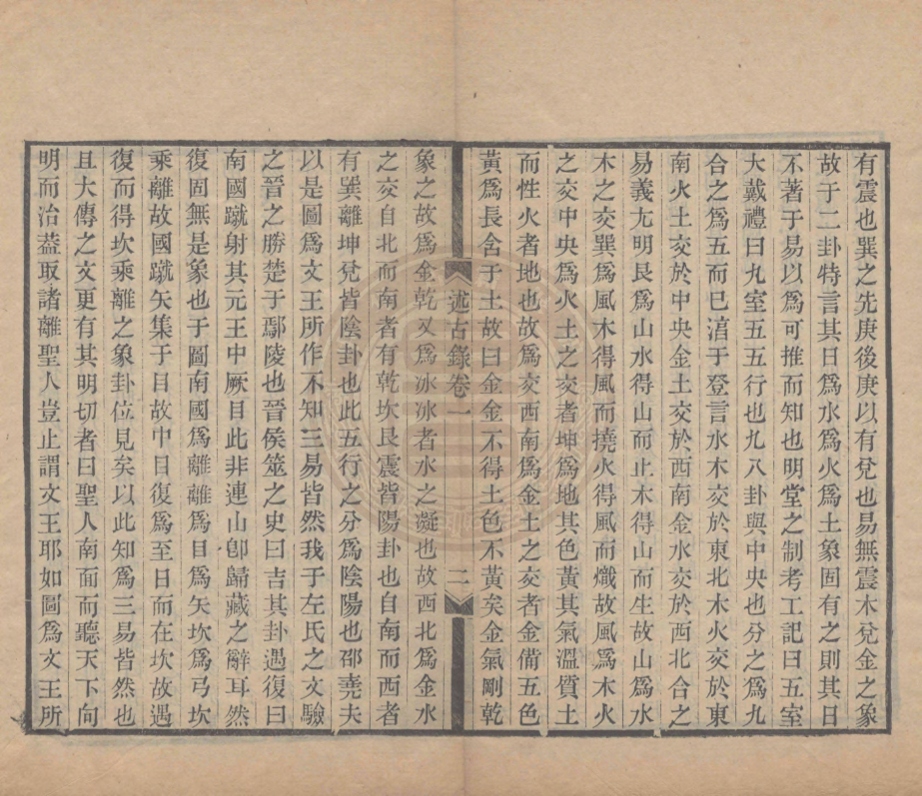 有震也巽之先庚後庚以有兌也易無震木兌金之象
故于二卦特言其日爲水爲火爲土象固有之則其日
不著于易以爲可推而知也明堂之制考工記曰五室
大戴禮曰九室五五行也九八卦與中央也分之爲九
合之爲五而已淯于登言水木交於東北木火交於東
南火土交於中央金土交於西南金水交於西北合之
易義尢明艮爲山水得山而止木得山而生故山爲水
木之交巽爲風木得風而撓火得風而熾故風爲木火
之交中央爲火土之交者坤爲地其色黃其氣溫質土
而性火者地也故爲交西南爲金土之交者金備五色
黃爲長含于土故曰金金不得土色不黃矣金氣剛乾
述古錄卷一
二
象之故爲金乾又爲冰冰者水之凝也故西北爲金水
之交自北而南者有乾坎艮震皆陽卦也自南而西者
有巽離坤兌皆陰卦也此五行之分爲陰陽也邵堯夫
以是圖爲文王所作不知三易皆然我于左氏之文驗
之晉之勝楚于鄢陵也晉侯筮之史曰吉其卦遇復曰
南國蹴射其元王中厥目此非連山卽歸藏之辭耳然
復固無是象也于圖南國爲離離爲目爲矢坎爲弓坎
乘離故國蹴矢集于目故中目復爲至日而在坎故遇
復而得坎乘離之象卦位見矣以此知爲三易皆然也
且大傳之文更有其明切者曰聖人南面而聽天下向
明而治葢取諸離聖人豈止謂文王耶如圖爲文王所